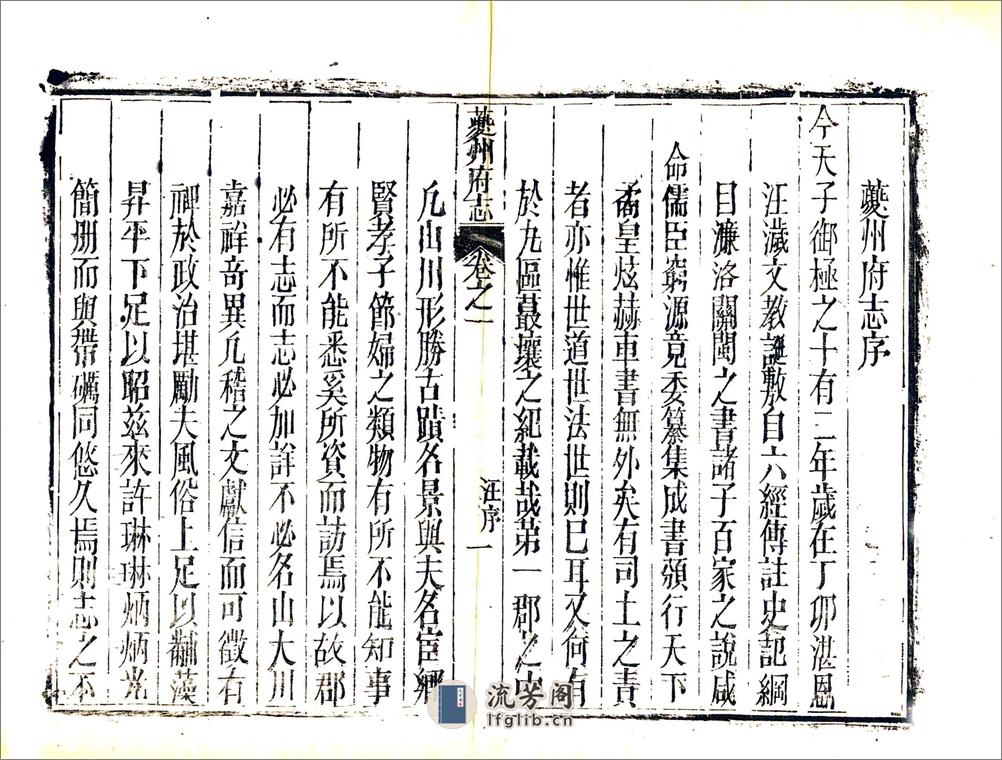 夔州府志序
今天子御極之十有二年歲在丁卯湛恩
汪濊文教誕敷自六經傳註史記綱
目濂洛關閩之書諸子百家之說咸
命儒臣窮源竟委纂集成書頒行天下
矞皇炫赫車書無外矣有司土之責
者亦惟世道世法世則已耳又何有
於九區蕞壤之紀載哉第一郡之中
夔州府志
卷之一
汪序
一
凡山川形勝古蹟名景與夫名宦鄉
賢孝子節婦之類物有所不能知事
有所不能悉奚所資而訪焉以故郡
必有志而志必加詳不必名山大川
嘉祥奇異凡稽之文獻信而可徵有
裨於政治堪勵夫風俗上足以黼藻
昇平下足以昭茲來許琳琳炳炳光
簡册而與帶礪同悠久焉則志之不
流芳阁
lfglib.cn